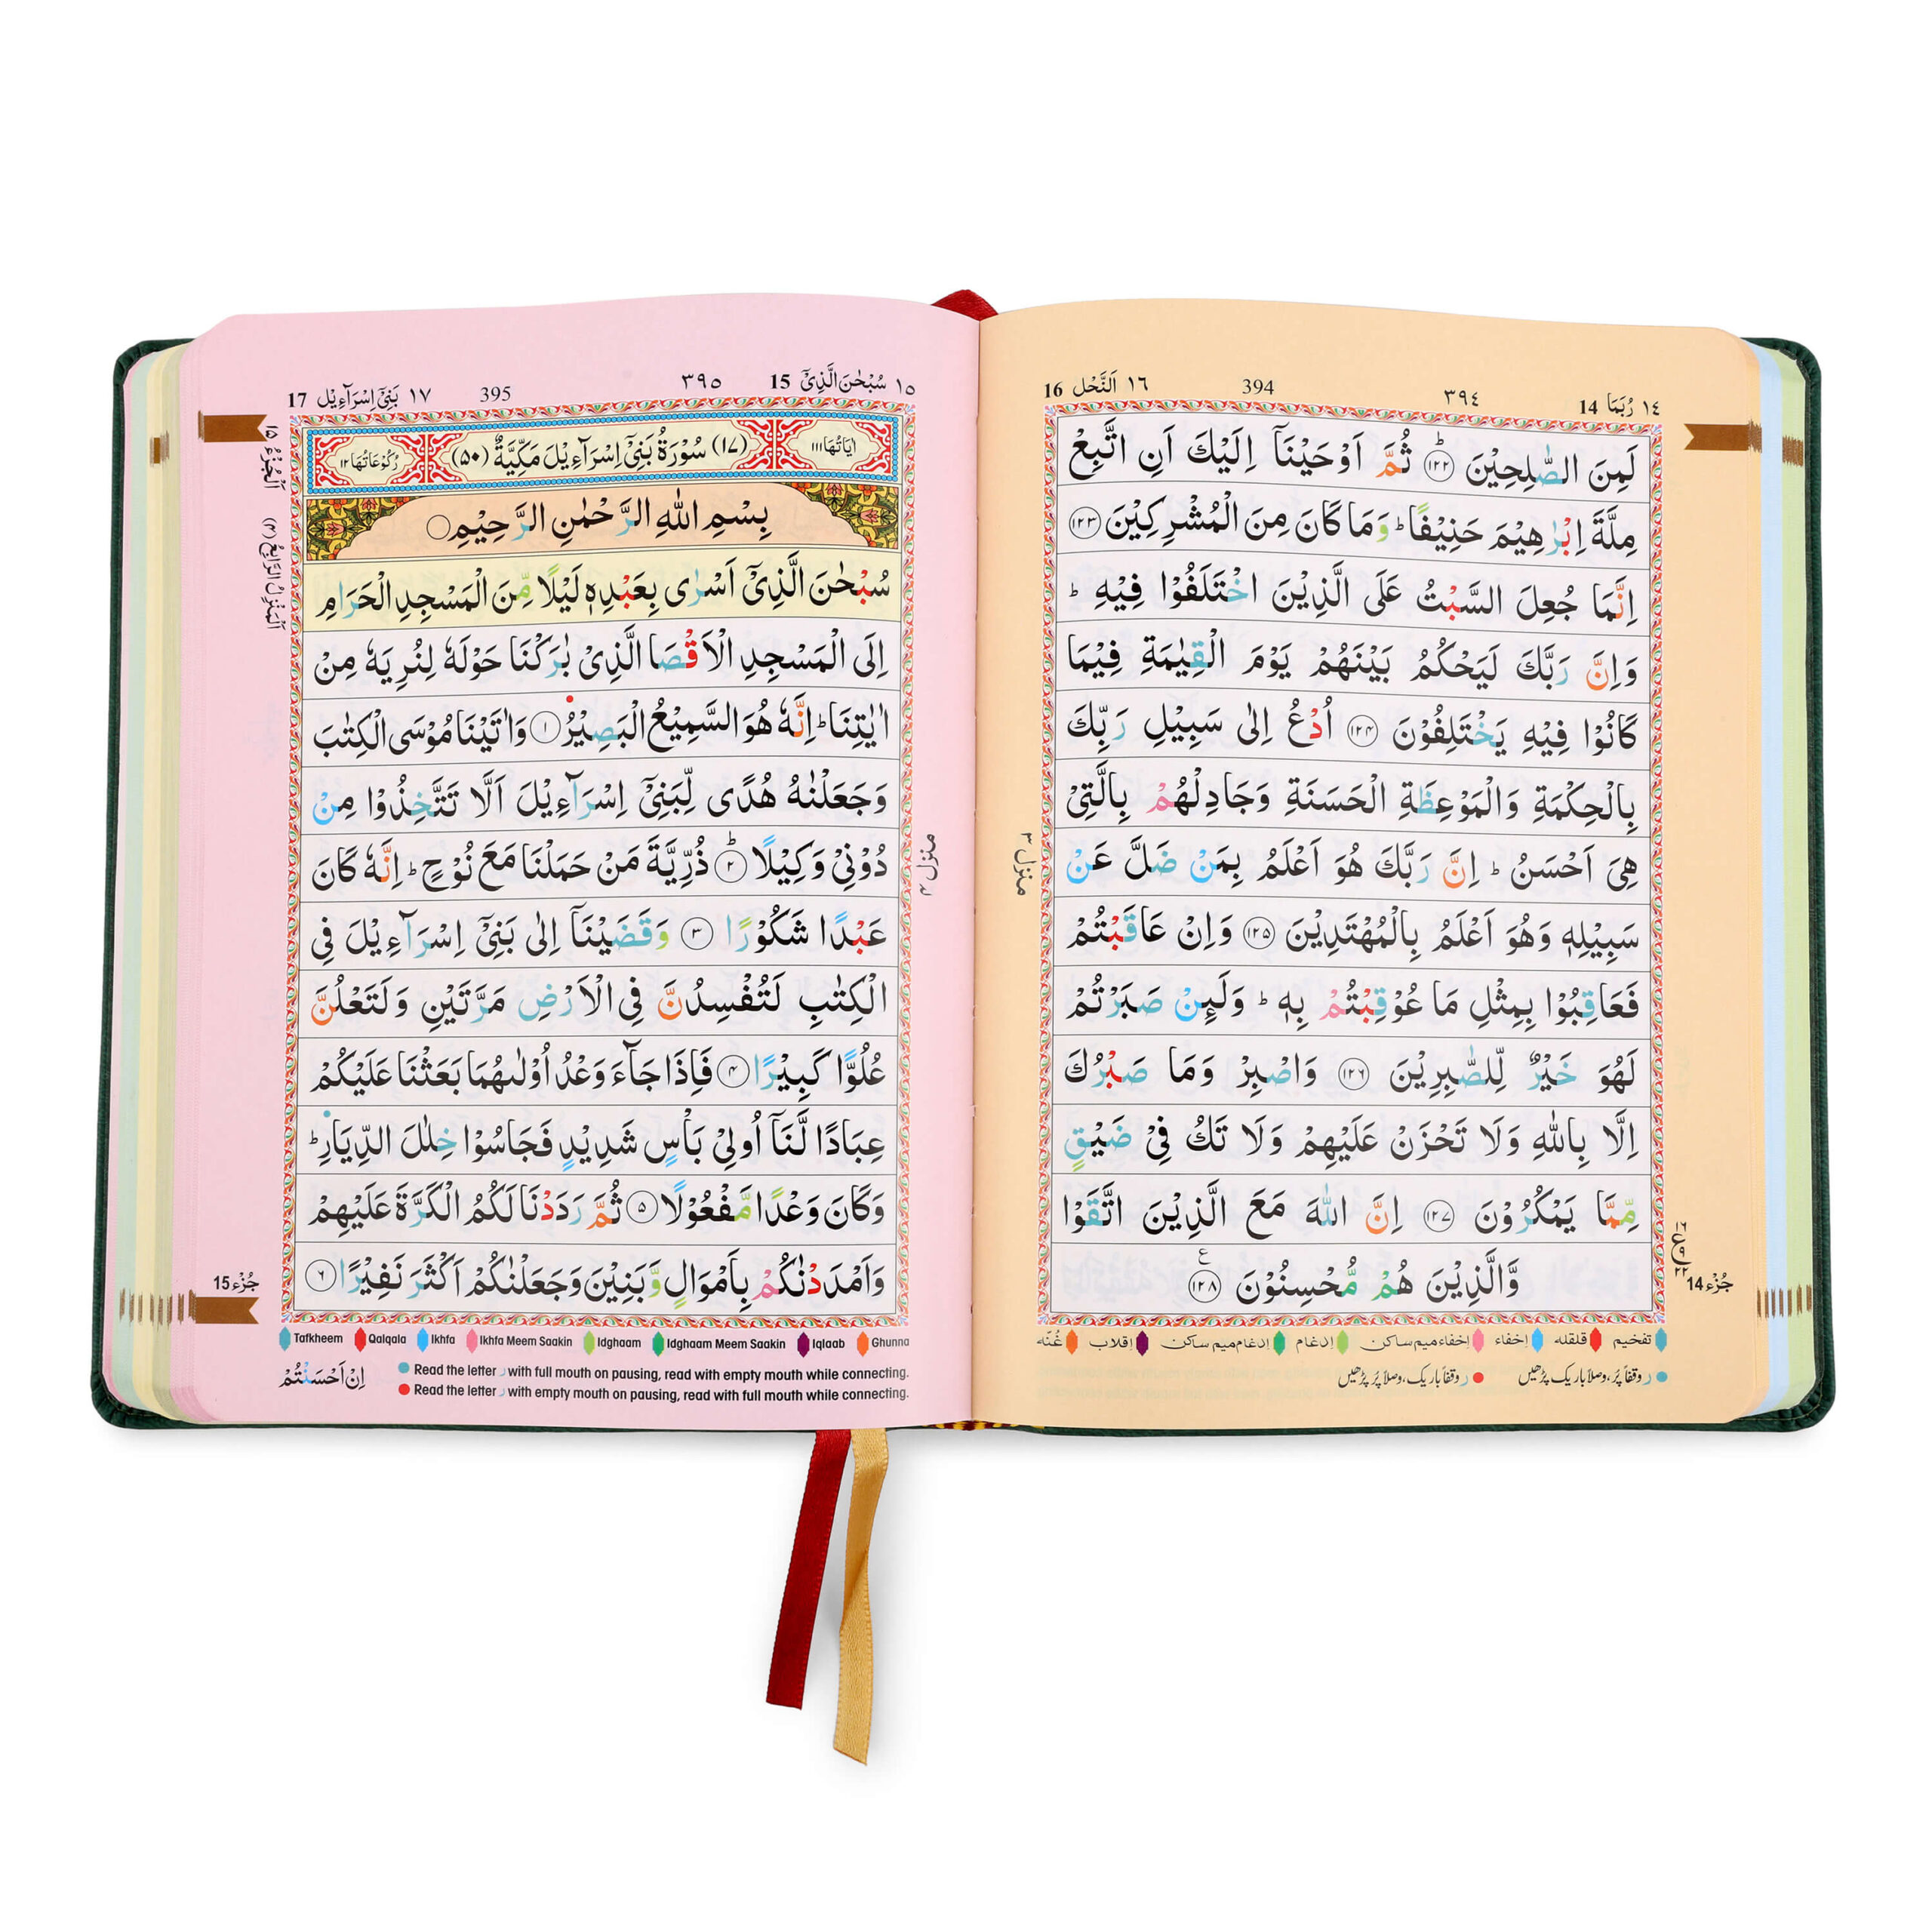 ١٤ رُبَمَا 14
٣٩٤
394
١٦ اَلنَّحْل 16
لَمِنَ الصّٰلِحِيْنَ ۝١٢٢ؕ ثُمَّ اَوْحَيْنَاۤ اِلَيْكَ اَنِ اتَّبِعْ
مِلَّةَ اِبْرٰهِيْمَ حَنِيْفًا ؕ وَمَا كَانَ مِنَ الْمُشْرِكِيْنَ ۝١٢٣
اِنَّمَا جُعِلَ السَّبْتُ عَلَى الَّذِيْنَ اخْتَلَفُوْا فِيْهِ ؕ
وَاِنَّ رَبَّكَ لَيَحْكُمُ بَيْنَهُمْ يَوْمَ الْقِيٰمَةِ فِيْمَا
كَانُوْا فِيْهِ يَخْتَلِفُوْنَ ۝١٢٤ اُدْعُ اِلٰى سَبِيْلِ رَبِّكَ
بِالْحِكْمَةِ وَالْمَوْعِظَةِ الْحَسَنَةِ وَجَادِلْهُمْ بِالَّتِيْ
هِيَ اَحْسَنُ ؕ اِنَّ رَبَّكَ هُوَ اَعْلَمُ بِمَنْ ضَلَّ عَنْ
سَبِيْلِهٖ وَهُوَ اَعْلَمُ بِالْمُهْتَدِيْنَ ۝١٢٥ وَاِنْ عَاقَبْتُمْ
فَعَاقِبُوْا بِمِثْلِ مَا عُوْقِبْتُمْ بِهٖ ؕ وَلَىِٕنْ صَبَرْتُمْ
لَهُوَ خَيْرٌ لِّلصّٰبِرِيْنَ ۝١٢٦ وَاصْبِرْ وَمَا صَبْرُكَ
اِلَّا بِاللّٰهِ وَلَا تَحْزَنْ عَلَيْهِمْ وَلَا تَكُ فِيْ ضَيْقٍ
مِّمَّا يَمْكُرُوْنَ ۝١٢٧ اِنَّ اللّٰهَ مَعَ الَّذِيْنَ اتَّقَوْا
وَّالَّذِيْنَ هُمْ مُّحْسِنُوْنَ ۝١٢٨ ع
منزل ٣
١٦
ع ٩
٢٢
جُزْء 14
تفخیم قلقله إخفاء إخفاء ميم ساكن إدغام إدغام ميم ساكن إقلاب غُنّه
ر وقفاً پُر، وصلاً باریک پڑھیں
ر وقفاً باریک، وصلاً پُر پڑھیں
١٥ سُبْحٰنَ الَّذِيْۤ 15
٣٩٥
395
١٧ بَنِيْۤ اِسْرَآءِيْل 17
اٰيَاتُهَا ١١١
(١٧) سُوْرَةُ بَنِيْۤ اِسْرَآءِيْلَ مَكِّيَّةٌ (٥٠)
رُكُوْعَاتُهَا ١٢
بِسْمِ اللّٰهِ الرَّحْمٰنِ الرَّحِيْمِ ۝
سُبْحٰنَ الَّذِيْۤ اَسْرٰى بِعَبْدِهٖ لَيْلًا مِّنَ الْمَسْجِدِ الْحَرَامِ
اِلَى الْمَسْجِدِ الْاَقْصَا الَّذِيْ بٰرَكْنَا حَوْلَهٗ لِنُرِيَهٗ مِنْ
اٰيٰتِنَا ؕ اِنَّهٗ هُوَ السَّمِيْعُ الْبَصِيْرُ ۝١ وَاٰتَيْنَا مُوْسَى الْكِتٰبَ
وَجَعَلْنٰهُ هُدًى لِّبَنِيْۤ اِسْرَآءِيْلَ اَلَّا تَتَّخِذُوْا مِنْ
دُوْنِيْ وَكِيْلًا ۝٢ؕ ذُرِّيَّةَ مَنْ حَمَلْنَا مَعَ نُوْحٍ ؕ اِنَّهٗ كَانَ
عَبْدًا شَكُوْرًا ۝٣ وَقَضَيْنَاۤ اِلٰى بَنِيْۤ اِسْرَآءِيْلَ فِي
الْكِتٰبِ لَتُفْسِدُنَّ فِي الْاَرْضِ مَرَّتَيْنِ وَلَتَعْلُنَّ
عُلُوًّا كَبِيْرًا ۝٤ فَاِذَا جَآءَ وَعْدُ اُوْلٰىهُمَا بَعَثْنَا عَلَيْكُمْ
عِبَادًا لَّنَاۤ اُولِيْ بَاْسٍ شَدِيْدٍ فَجَاسُوْا خِلٰلَ الدِّيَارِ ؕ
وَكَانَ وَعْدًا مَّفْعُوْلًا ۝٥ ثُمَّ رَدَدْنَا لَكُمُ الْكَرَّةَ عَلَيْهِمْ
وَاَمْدَدْنٰكُمْ بِاَمْوَالٍ وَّبَنِيْنَ وَجَعَلْنٰكُمْ اَكْثَرَ نَفِيْرًا ۝٦
منزل ٤
اَلْجُزْءُ ١٥
اَلْمَنْزِلُ الرَّابِعُ (٤)
جُزْء 15
Tafkheem Qalqala Ikhfa Ikhfa Meem Saakin Idghaam Idghaam Meem Saakin Iqlaab Ghunna
Read the letter ر with full mouth on pausing, read with empty mouth while connecting.
Read the letter ر with empty mouth on pausing, read with full mouth while connecting.
اِنْ اَحْسَنْتُمْ